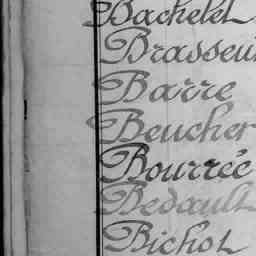 Bachelet
Brasseur
Barre
Beucher
Bourrée
Bedault
Bichot